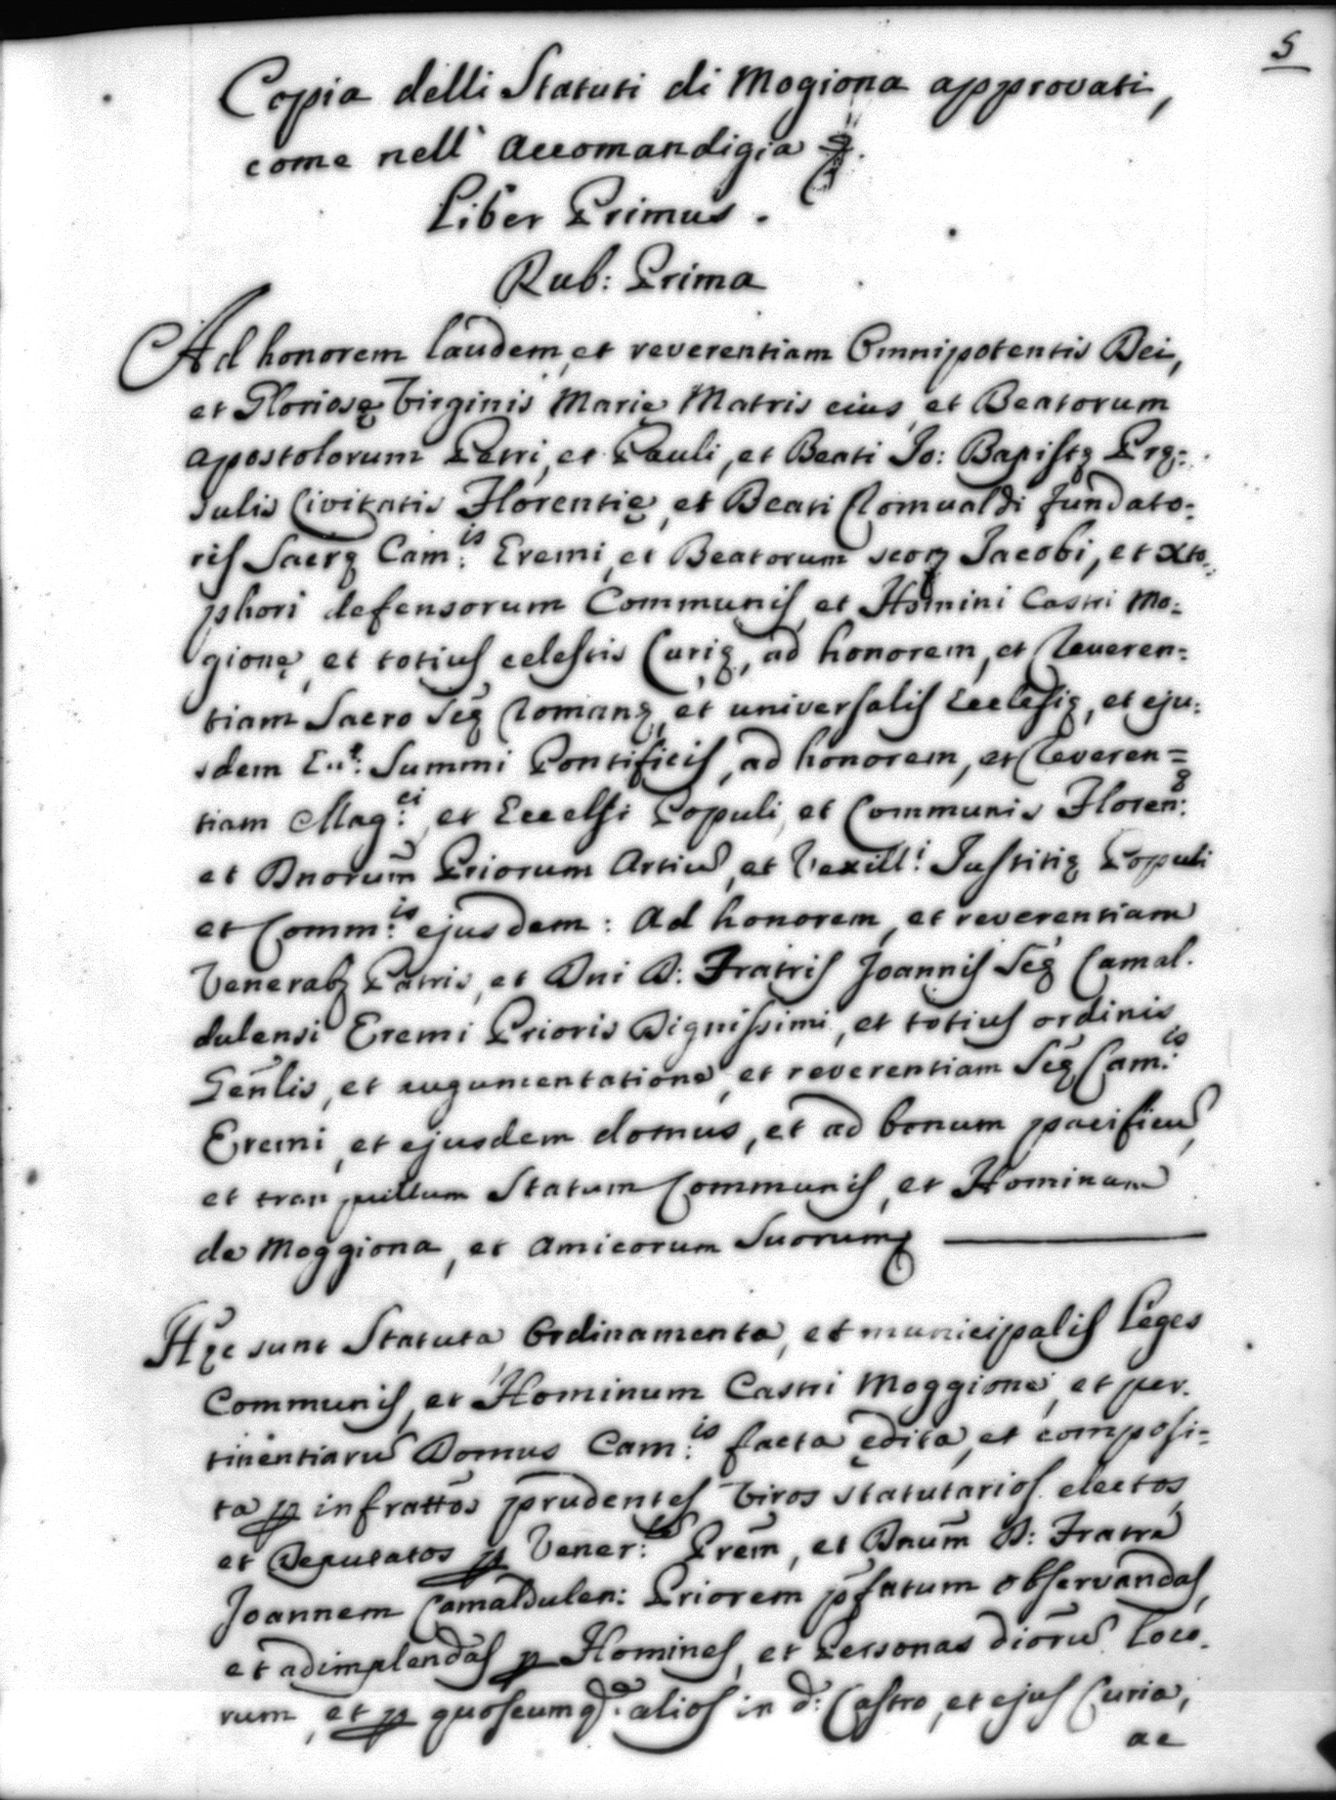 5
Copia delli Statuti di Mogiona approvati,
come nell' Accomandigia
Liber Primus.
Rub: Prima
Ad honorem laudem, et reverentiam Omnipotentis Dei,
et Gloriosę Virginis Marię Matris eius, et Beatorum
Apostolorum Petri, et Pauli, et Beati Jo: Baptistę Prę=
sulis Civitatis Florentię, et Beati Romualdi fundato=
ris Sacrę Cam:is Eremi, et Beatorum Jacobi, et Xto=
phori defensorum Communis, et Homini Castri Mo=
gionę, et totius celestis Curię, ad honorem, et Reveren=
tiam Sacro Sẽ Romanę, et universalis Ecclesię, et eju=
sdem Summi Pontificis, ad honorem, et Reveren=
tiam Mag:ci, et Eccelsi Populi, et Communis Floren:
et Dnorum̃ Priorum Artiũ, et Vexill:i Justitię Populi
et Comm:is ejusdem: Ad honorem, et reverentiam
Venerab Patris, et Dni D: Fratris Joannis Sẽ Camal.
dulensi Eremi Prioris Dignissimi, et totius ordinis
Geñlis, et augumentationẽ, et reverentiam Sẽ Cam:is
Eremi, et ejusdem domus, et ad bonum pacificũ,
et tranquillum Statum Communis, et Hominum
de Moggiona, et Amicorum Suorum
Hęc sunt Statuta Ordinamenta, et municipalis Leges
Communis, et Hominum Castri Moggionę, et per.
tinentiarũ Domus Cam:is facta ędita, et composi=
ta p infrattõs prudentes Viros statutarios electos,
et Deputatos p Vener: Prem̃, et Dnum̃ D: Fratrẽ
Joannem Camaldulen: Priorem p̃fatum observandas,
et adimplendas p Homines, et Personas dtorũ loco.
rum, et p quoscumq: alios in d: Castro, et ejus Curia,
ac